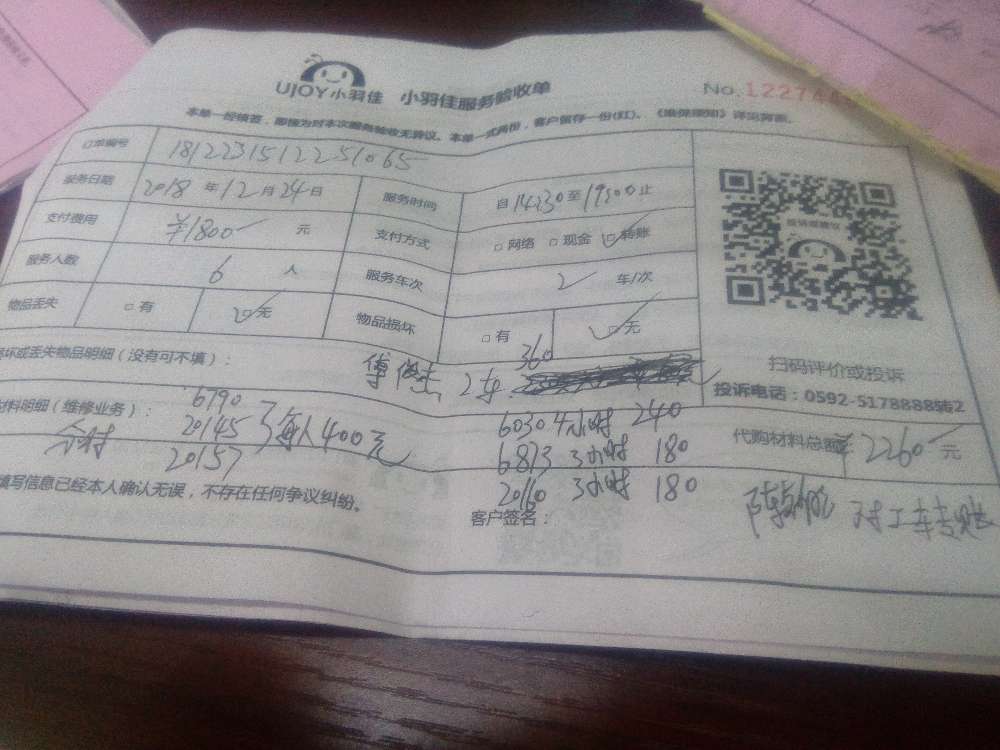 UJOY小羽佳 小羽佳服务验收单
No.12274
本单一经填签，即视为对本次服务验收无异议。本单一式两份，客户留存一份(红)。《维保须知》详见背面。
订单编号 1812231512251065
服务日期 2018 年 12 月 24 日 服务时间 自 14:30 至 19:00 止
支付费用 ¥1800 元 支付方式 □网络 □现金 ☑转账
服务人数 6 人 服务车次 2 车/次
物品丢失 □有 ☑无 物品损坏 □有 ☑无
投诉或建议
扫码评价或投诉
投诉电话：0592-5178888转2
坏或丢失物品明细（没有可不填）：
360
2车
材料明细（维修业务）：
6790
20145 每人400元
20157
6030 4小时 240
6873 3小时 180
20160 3小时 180
代购材料总额 ¥2260 元
填写信息已经本人确认无误，不存在任何争议纠纷。
客户签名：